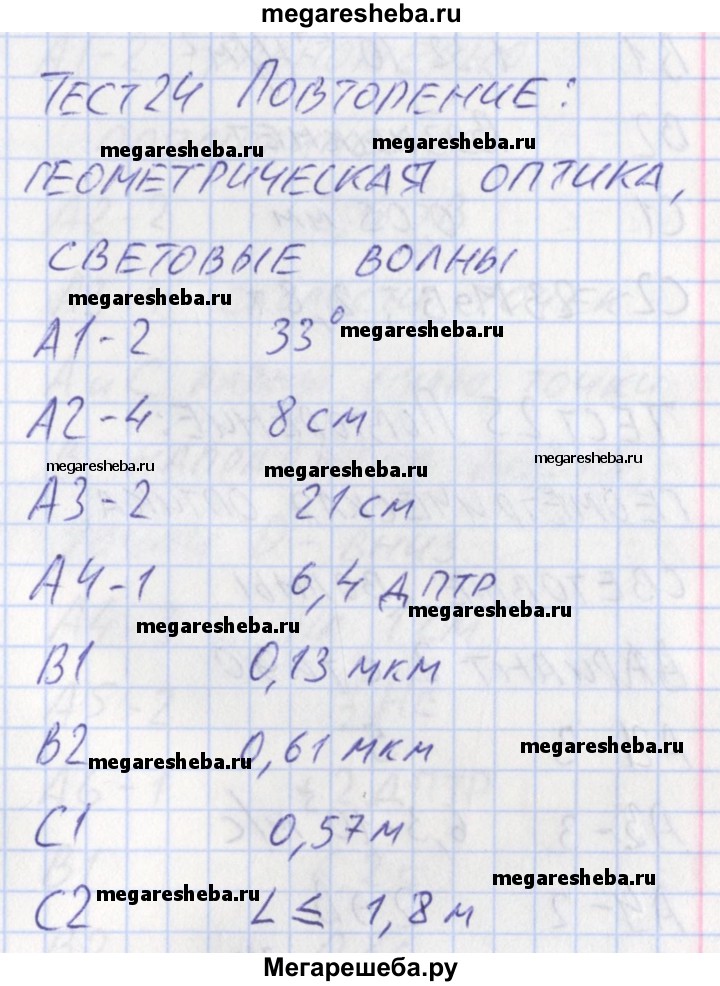 megaresheba.ru
ТЕСТ 24 ПОВТОРЕНИЕ:
megaresheba.ru megaresheba.ru
ГЕОМЕТРИЧЕСКАЯ ОПТИКА,
СВЕТОВЫЕ ВОЛНЫ
megaresheba.ru
А1-2 33° megaresheba.ru
А2-4 8 см
megaresheba.ru megaresheba.ru megaresheba.ru
А3-2 21 см
А4-1 6,4 дптр
megaresheba.ru megaresheba.ru
В1 0,13 мкм
В2 megaresheba.ru 0,61 мкм megaresheba.ru
С1 0,57 м
С2 megaresheba.ru L ≤ 1,8 м megaresheba.ru
Мегарешеба.ру